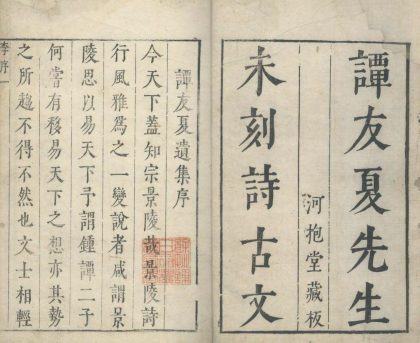 譚友夏先生
河抱堂藏板
未刻詩古文
譚友夏遺集序
今天下蓋知宗景陵哉景陵詩
行風雅爲之一變說者咸謂景
陵思以易天下予謂鍾譚二子
何嘗有移易天下之想亦其勢
之所趨不得不然也文士相輕
李序一